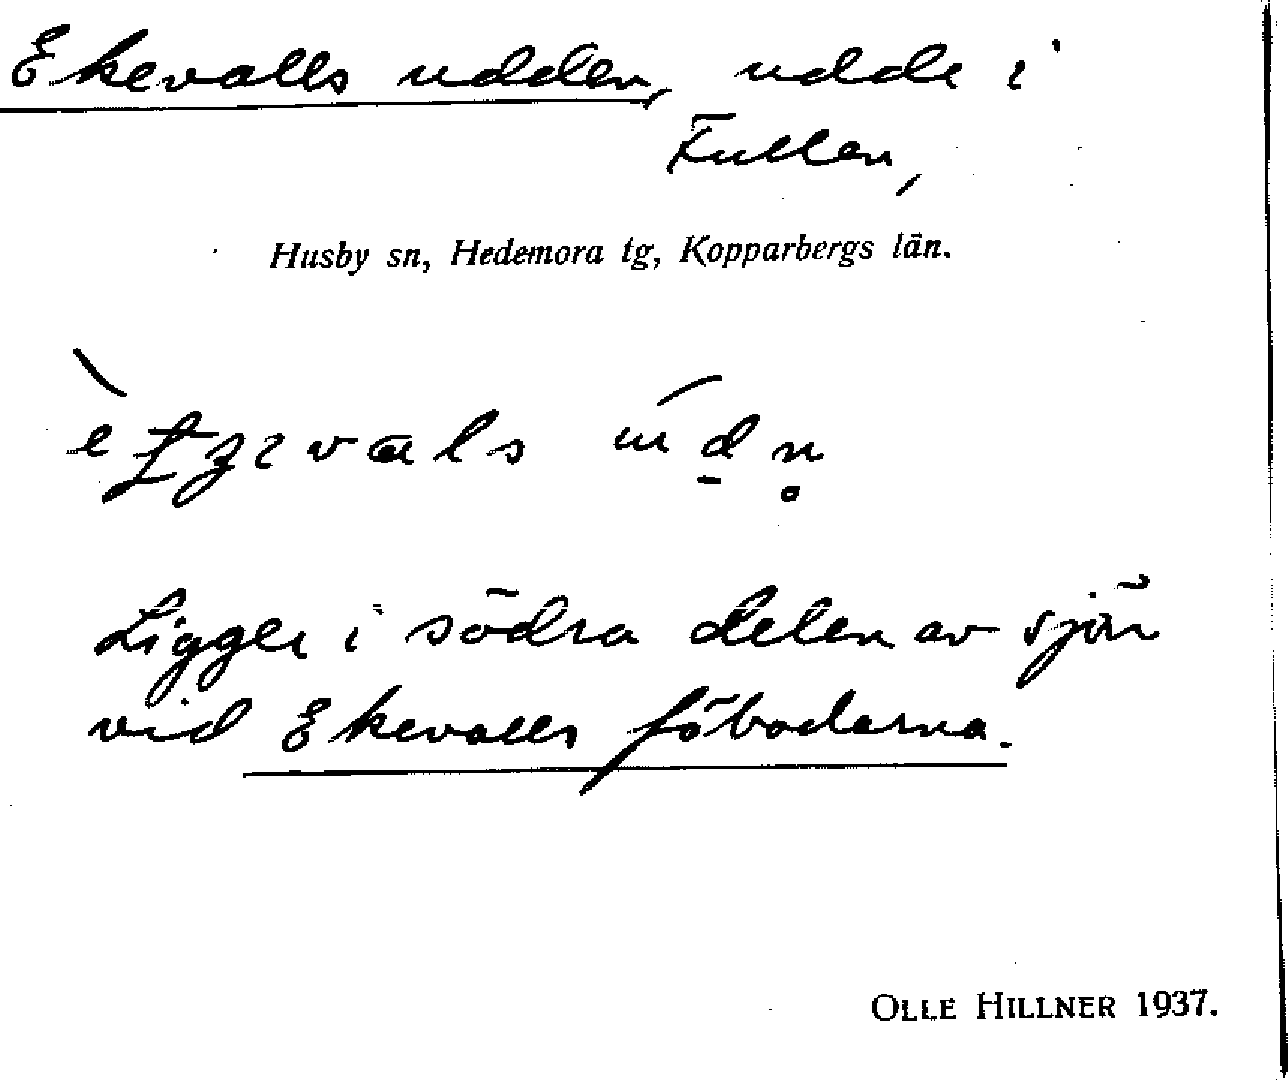 Ekevalls udden, udde i
Fullen,
Husby sn, Hedemora tg, Kopparbergs län.
Ligger i södra delen av sjön
vid Ekevalls fäbodarna.
OLLE HILLNER 1937.